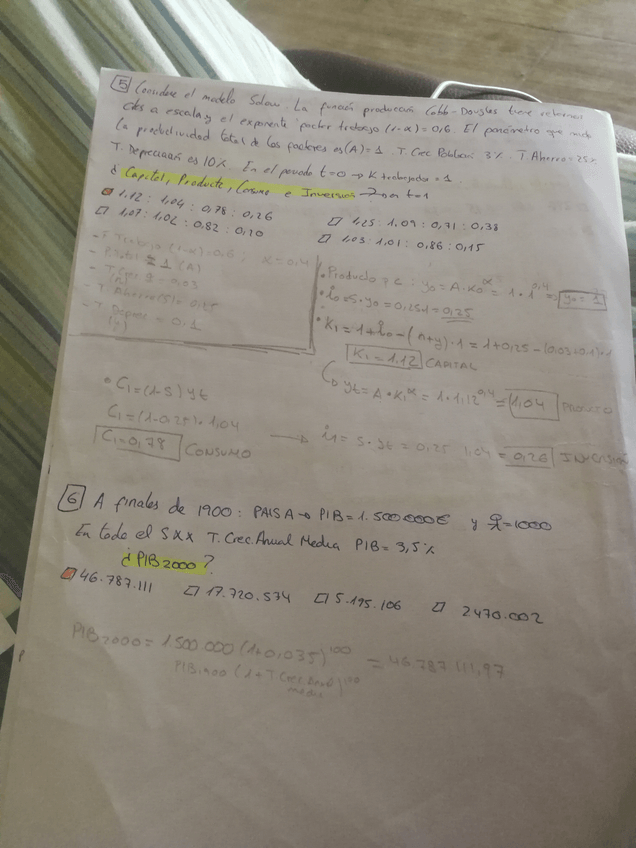 5 Considere el modelo Solow. La función producción Cobb-Douglas tiene
ctes a escala y el exponente factor trabajo (1-α) = 0,6 El parámetro que mide
la productividad total de los factores es (A) = 1. T. Crec Población 3%. T Ahorro = 25%
T. Depreciación es 10%. En el periodo t=0 → K trabajador = 1.
¿Capital, Producto, Consumo e Inversión → en t=1
1.12 : 1,04 : 0,78 : 0,26
1,07 : 1,02 : 0,82 : 0,20
1,25 : 1,09 : 0,71 : 0,38
1,03 : 1,01 : 0,86 : 0,15
(1-α) = 0,6 ; α = 0,4
- P. Total = 1 (A)
- 0,03
- T Ahorro (S) = 0,25
- T. Deprec = 0,1
(γ)
• Producto p.c : y₀ = A · K₀^α = 1 · 1^0,4 = y₀ = 1
• i₀ = s · y₀ = 0,25 · 1 = 0,25
• K₁ = 1 + i₀ - (n+γ) · 1 = 1 + 0,25 - (0,03+0,1) · 1
K₁ = 1.12 CAPITAL
yt = A · K₁^α = 1 · 1,12^0,4 = 1,04 PRODUCTO
• C₁ = (1-S) yt
C₁ = (1-0,25) · 1,04
C₁ = 0,78 CONSUMO
→ i₁ = s · yt = 0,25 1,04 = 0,26 INVERSIÓN
6 A finales de 1900 : PAIS A → PIB = 1.500.000€ y = 1000
En todo el SXX T. Crec. Anual Media PIB = 3,5%
¿PIB 2000?
46.787.111 17.720.574 5.195.106 2470.002
PIB 2000 = 1.500.000 (1+0,035)^100 = 46.787 111,97
PIB 1900 (1 + T Crec. Anual)^100
media